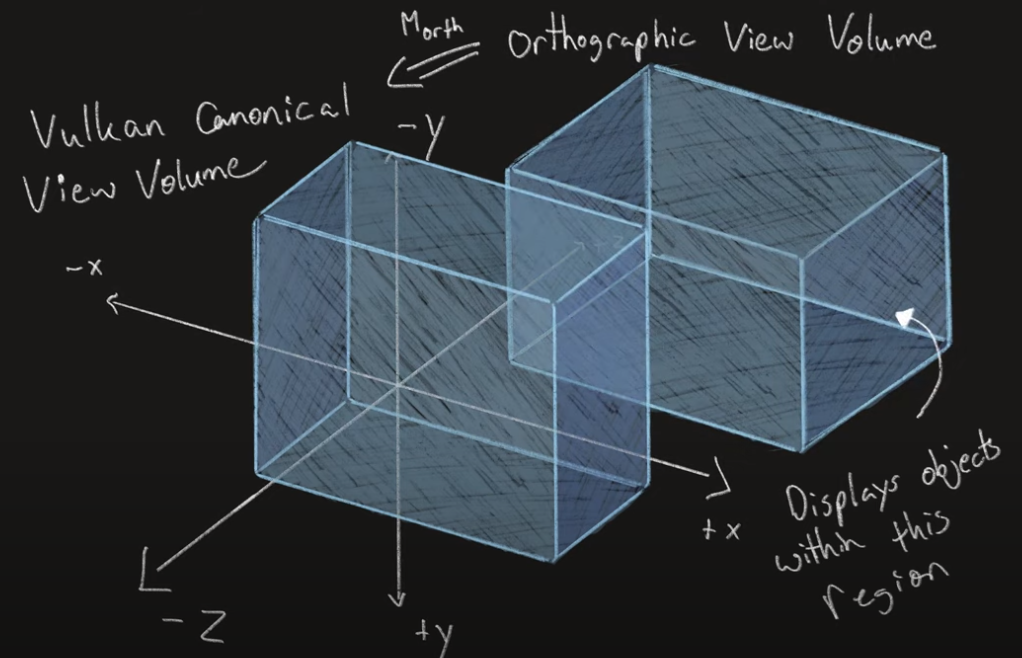 Morth
Orthographic View Volume
Vulkan Canonical
View Volume
-y
+z
-x
+x
Displays objects
within this
region
-z
+y